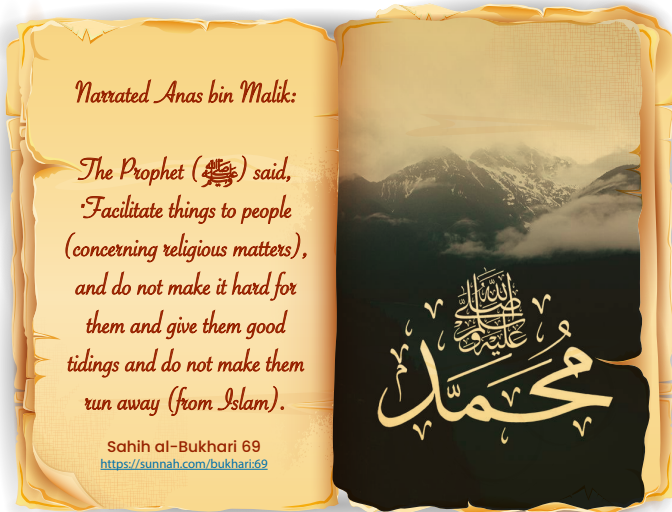 Narrated Anas bin Malik:
The Prophet (ﷺ) said,
"Facilitate things to people
(concerning religious matters),
and do not make it hard for
them and give them good
tidings and do not make them
run away (from Islam).
Sahih al-Bukhari 69
https://sunnah.com/bukhari:69
صلى الله عليه وسلم
محمد